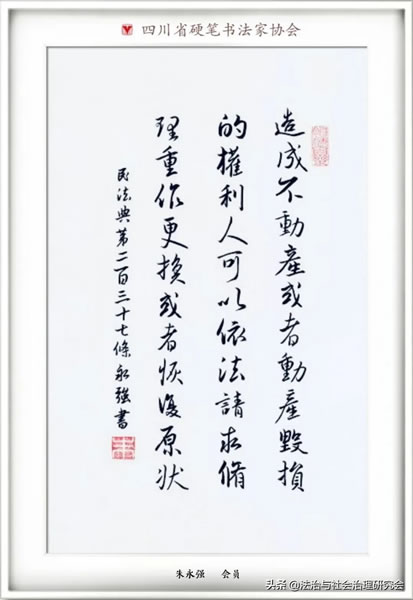 四川省硬笔书法家协会
造成不動產或者動產毀損
的權利人可以依法請求脩
理重作更換或者恢復原狀
民法典第二百三十七條 永強書
朱永强 会员
头条@法治与社会治理研究会